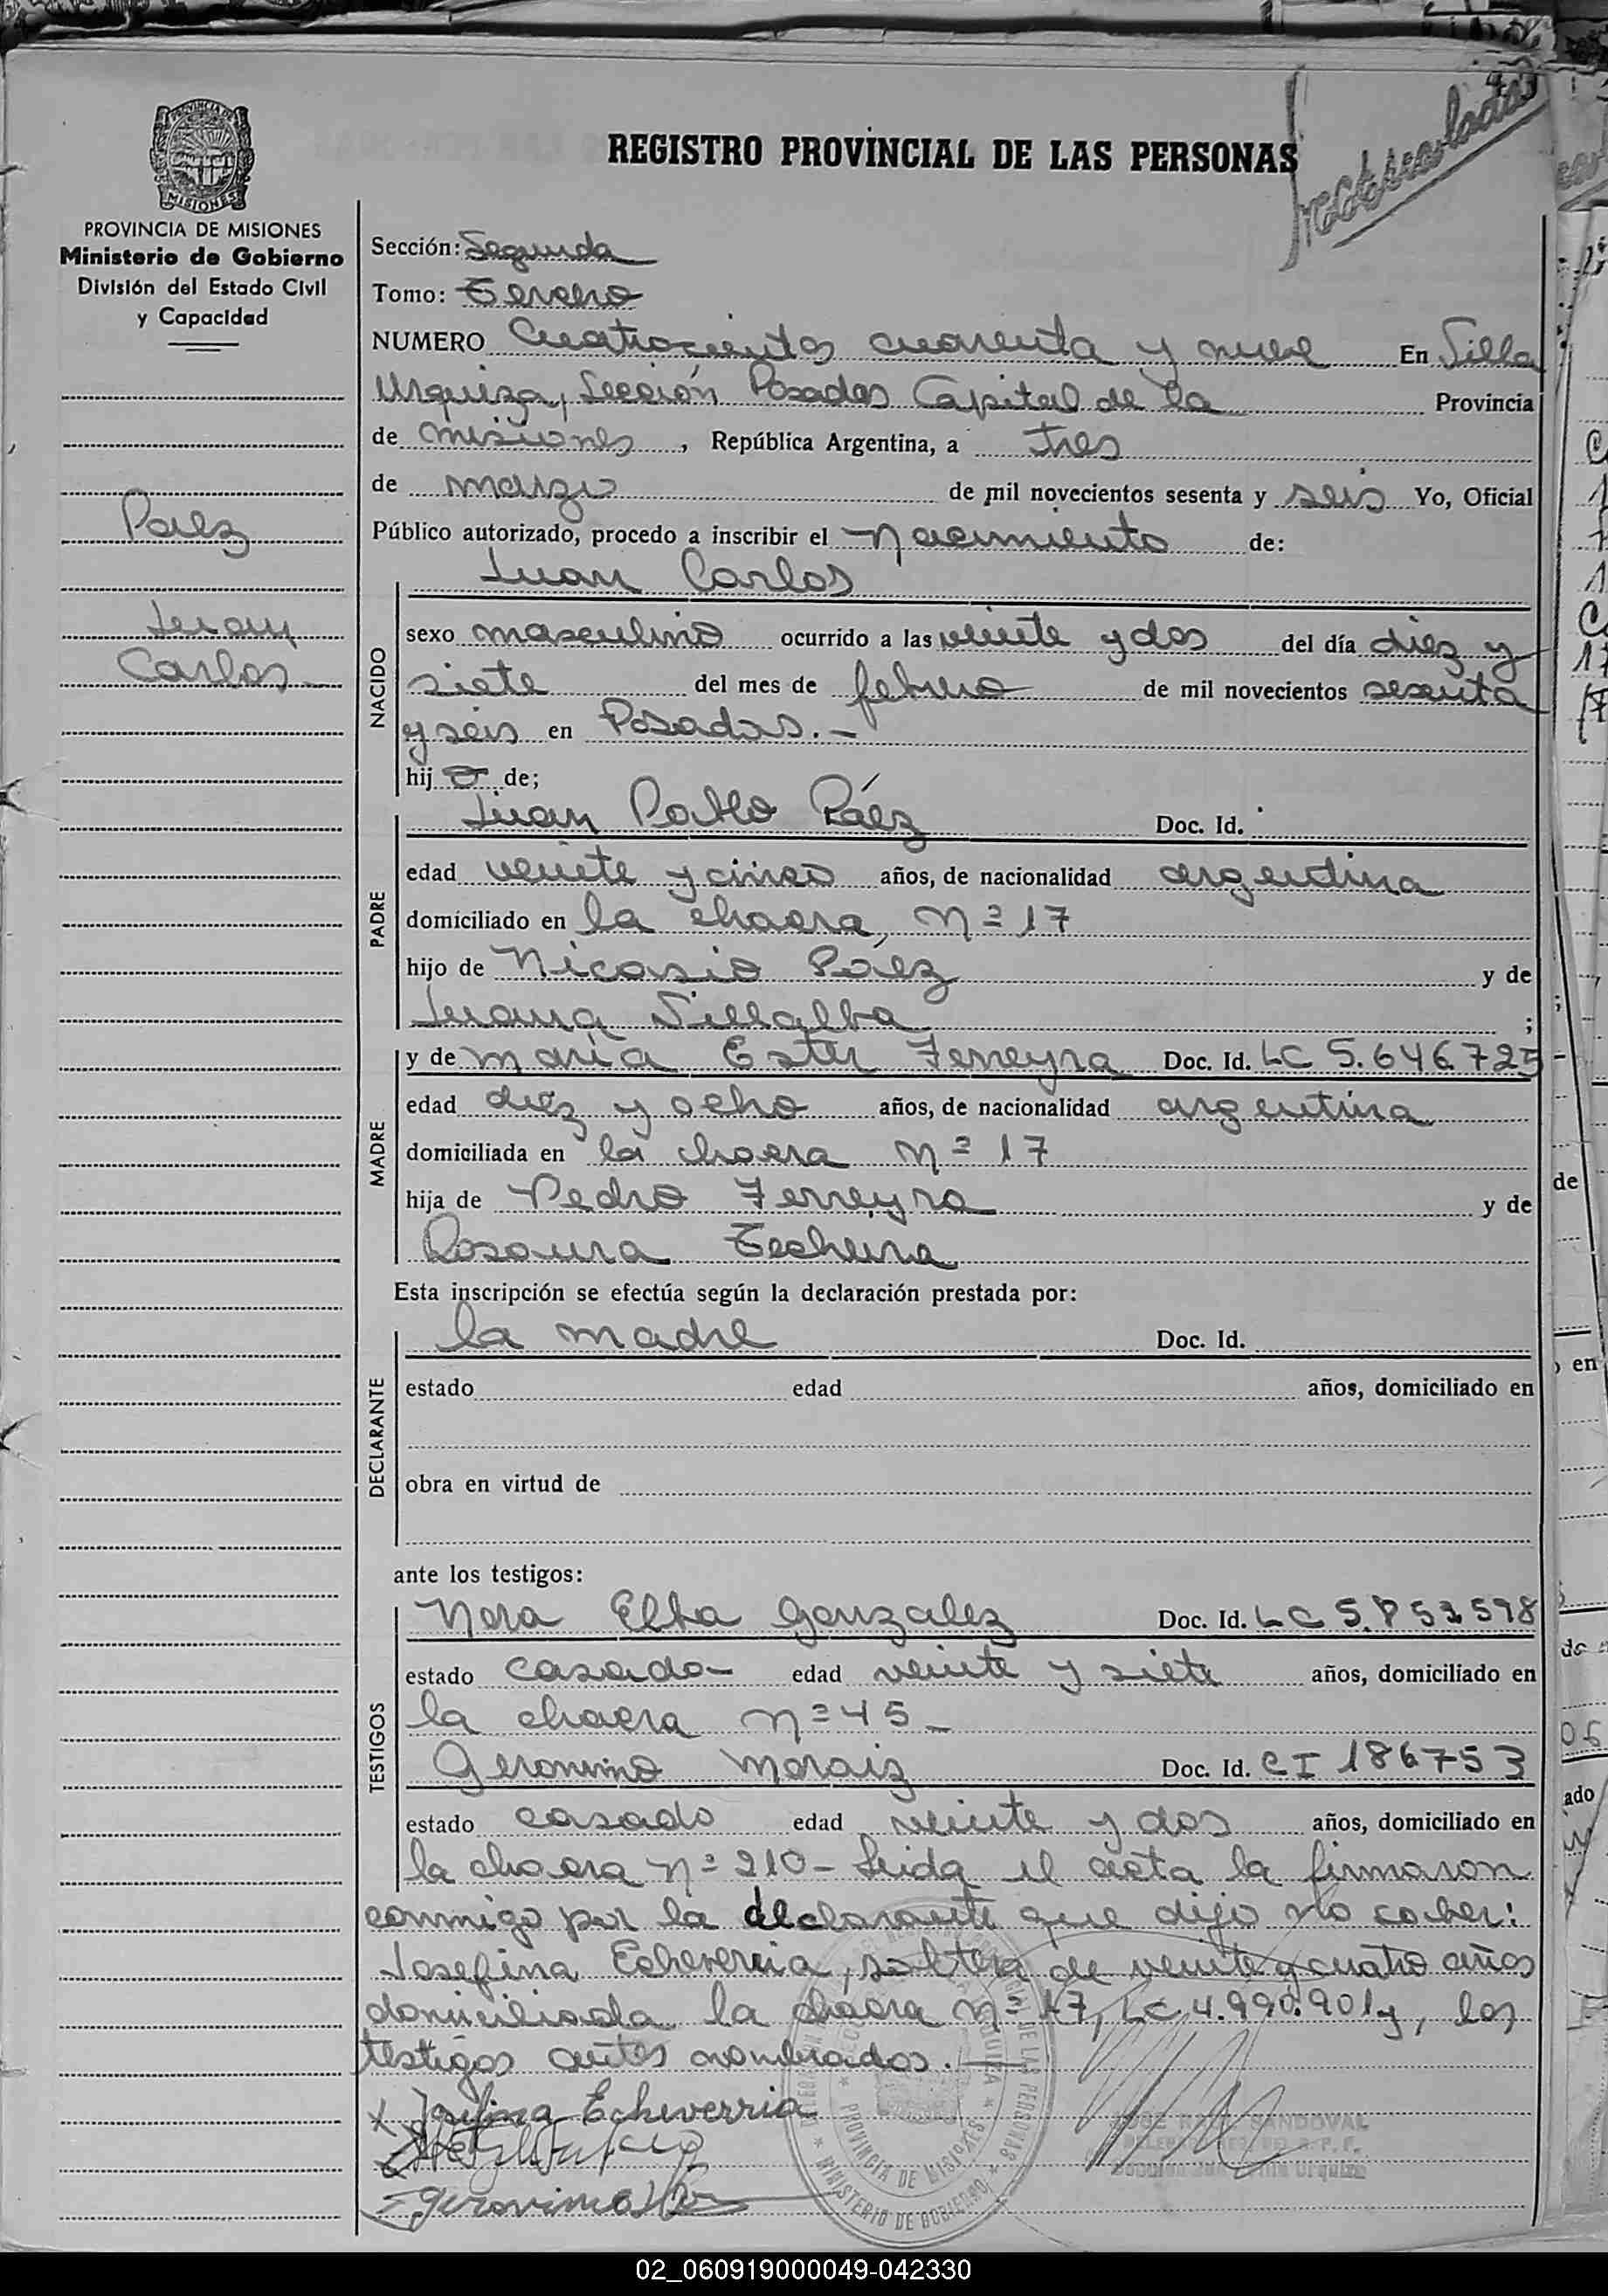 REGISTRO PROVINCIAL DE LAS PERSONAS
PROVINCIA DE MISIONES
Ministerio de Gobierno
División del Estado Civil
y Capacidad
Paez
Juan
Carlos
Sección: Segunda
Tomo: Tercero
NUMERO Cuatrocientos cuarenta y nueve En Villa
Urquiza, Sección Posadas Capital de la Provincia
de misiones, República Argentina, a tres
de marzo de mil novecientos sesenta y seis Yo, Oficial
Público autorizado, procedo a inscribir el nacimiento de:
NACIDO
Juan Carlos
sexo masculino ocurrido a las veinte y dos del día diez y
siete del mes de febrero de mil novecientos sesenta
y seis en Posadas.-
hijo de;
PADRE
Juan Pablo Páez Doc. Id.
edad veinte y cinco años, de nacionalidad argentina
domiciliado en la chacra, nº 17
hijo de Nicasio Paez y de
Juana Villalba ;
MADRE
y de maría Ester Ferreyra Doc. Id. LC 5.646.725
edad diez y ocho años, de nacionalidad argentina
domiciliada en la chacra nº 17
hija de Pedro Ferreyra y de
Rosaura Techeira
Esta inscripción se efectúa según la declaración prestada por:
DECLARANTE
la madre Doc. Id.
estado edad años, domiciliado en
obra en virtud de
ante los testigos:
TESTIGOS
Nora Elba Gonzalez Doc. Id. LC 5.853598
estado casada- edad veinte y siete años, domiciliado en
la chacra nº 45-
Geronimo Moraiz Doc. Id. CI 186753
estado casado edad veinte y dos años, domiciliado en
la chacra nº 210- Leida el acta la firmaron
conmigo por la declarante que dijo no saber:
Josefina Echeverria, soltera de veinte y cuatro años
domiciliada la chacra nº 17, LC 4.990.901 y, los
testigos antes nombrados.-
x Josefina Echeverria
PROVINCIA DE MISIONES
MINISTERIO DE GOBIERNO
SANDOVAL
02_060919000049-042330